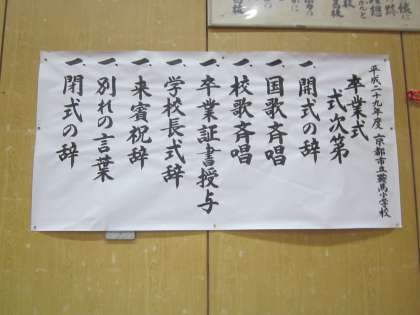 平成二十九年度 京都市立鞍馬小学校
卒業式
式次第
一、開式の辞
一、国歌斉唱
一、校歌斉唱
一、卒業証書授与
一、学校長式辞
一、来賓祝辞
一、別れの言葉
一、閉式の辞